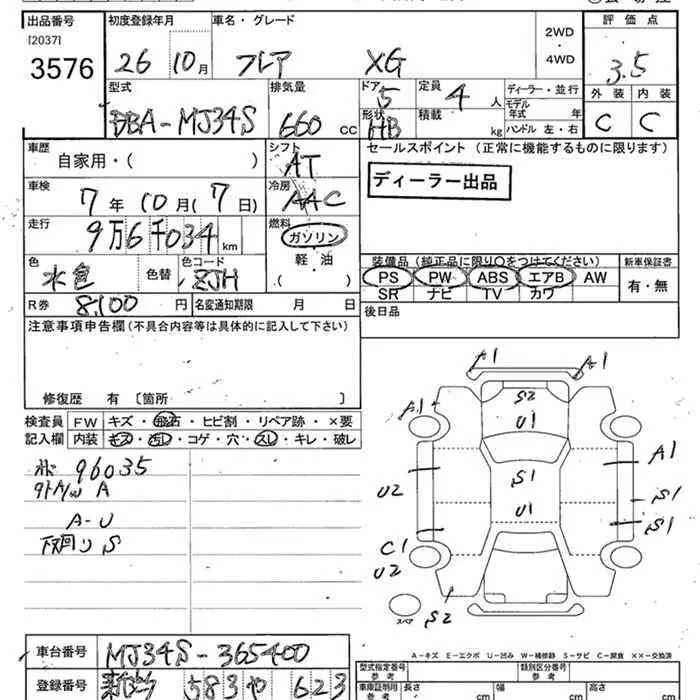 出品番号 初度登録年月 車名・グレード 2WD 評価点
[2037]
3576 26 10月 フレア XG 4WD 3.5
型式 排気量 ドア 5 定員 4 人 ディーラー・並行 外装 内装
DBA-MJ34S 660 CC 形状 HB 積載 kg モデル年式 年 C C
ハンドル 左・右
車歴 シフト セールスポイント (正常に機能するものに限ります)
自家用・( ) AT
ディーラー出品
車検 冷房
7年 10月(7日) AAC
走行 燃料
9万6千034km ガソリン
色 色コード 軽・油 装備品(純正品に限り○をつけてください) 新車保証書
水色 色替 8JH ( ) PS PW ABS エアB AW 有・無
SR ナビ TV カワ
R券 8,100円 名変通知期限 月 日 後日品
注意事項申告欄(不具合内容等は具体的に記入して下さい)
修復歴 有〔箇所 〕
検査員 FW キズ・飛石・ヒビ割・リペア跡・×要
記入欄 内装 キズ・汚れ・コゲ・穴・スレ・キレ・破レ
96035
A
A-U
下回りS
A1 A1
S2
A1 U1
A1
S1
U2 U1 S1
S1
C1
U2
S2
スペア
A-キズ E-エクボ U-凹み W-補修跡 S-サビ C-腐食 XX-交換済
車台番号 MJ34S-365400
型式指定番号 参考 類別区分番号 参考
登録番号 583 や 623
車庫証明用 参考 長さ cm 幅 cm 高さ cm